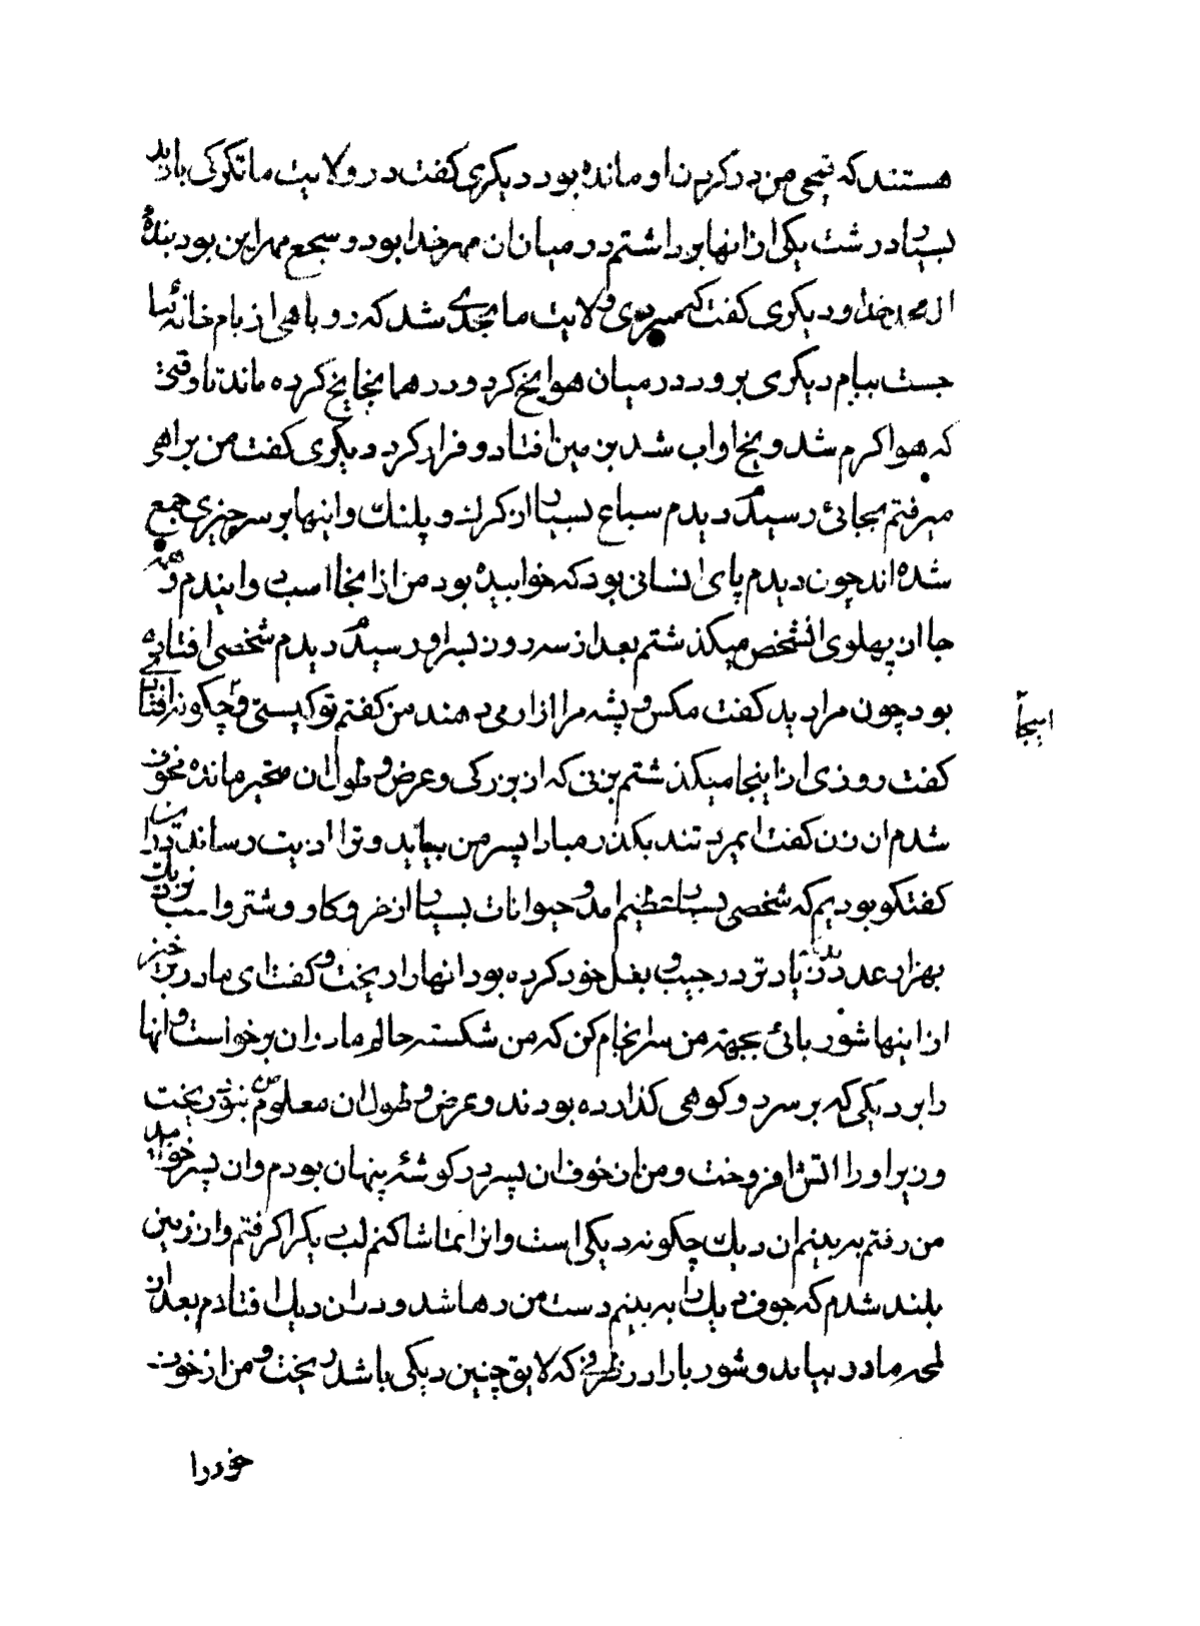 هستند که نیمی من در کردن او مانده بود دیگری کفت در ولایت ما تکرکی بارید
بسیار درشت یکی از انها برداشتم در میان ان مهر خدا بود و سجع مهر این بود بندهٔ
ال محمد خدا و دیکری کفت که ولایت ما بحدی شد که روباهی از بام خانهٔ تا
جست ببام دیکری برود در میان هوا یخ کرد و در همانجا یخ کرده ماند تا وقتی
که هوا کرم شد و یخ او اب شد بزمین افتاد و فرار کرد دیکری کفت من براهی
میرفتم بجائی رسیدم دیدم سباع بسیار از کرک و پلنک و اینها بر سر چیزی جمع
شده اند چون دیدم پای انسانی بود که خوابیده بود من از انجا اسب دوانیدم و همه
جا از پهلوی انشخص میکذشتم بعد از سه روز بسر او رسیدم دیدم شخصی افتاده
بود چون مرا دید کفت مکس و پشه مرا ازار می دهند من کفتم تو کیستی و چکونه افتاده
اینجا
کفت روزی از اینجا میکذشتم بزنی که از بزرکی و عرض و طول ان متحیر مانده محو ان
شدم ان زن کفت ای مرد تند بکذر مبادا پسر من بیاید و ترا اذیت رساند در این
کفتکو بودیم که شخصی بسیار عظیم امد و حیوانات بسیار از خر و کاو و شتر و اسب نزدیک
بهزار عدد زیادتر در جیب و بغل خود کرده بود انها را ریخت و کفت ای مادر بر خیز
از اینها شوربائی بجهته من سرانجام کن که من شکسته حالم مادر ان برخواست و انها
را بر دیکی که بر سر دو کوهی کذارده بودند و عرض و طول ان معلوم نبود ریخت
و زیر او را اتش افروخت و من از خوف ان پسر در کوشهٔ پنهان بودم و ان پسر خوابید
من رفتم به بینم ان دیک چکونه دیکی است و انرا تماشا کنم لب دیک را کرفتم و از زمین
بلند شدم که جوف دیک را به بینم دست من رها شد و در ان دیک افتادم بعد از
لمحه مادر بیامد و شوربا را در ظرفی که لایق چنین دیکی باشد ریخت و من از خوف
خود را